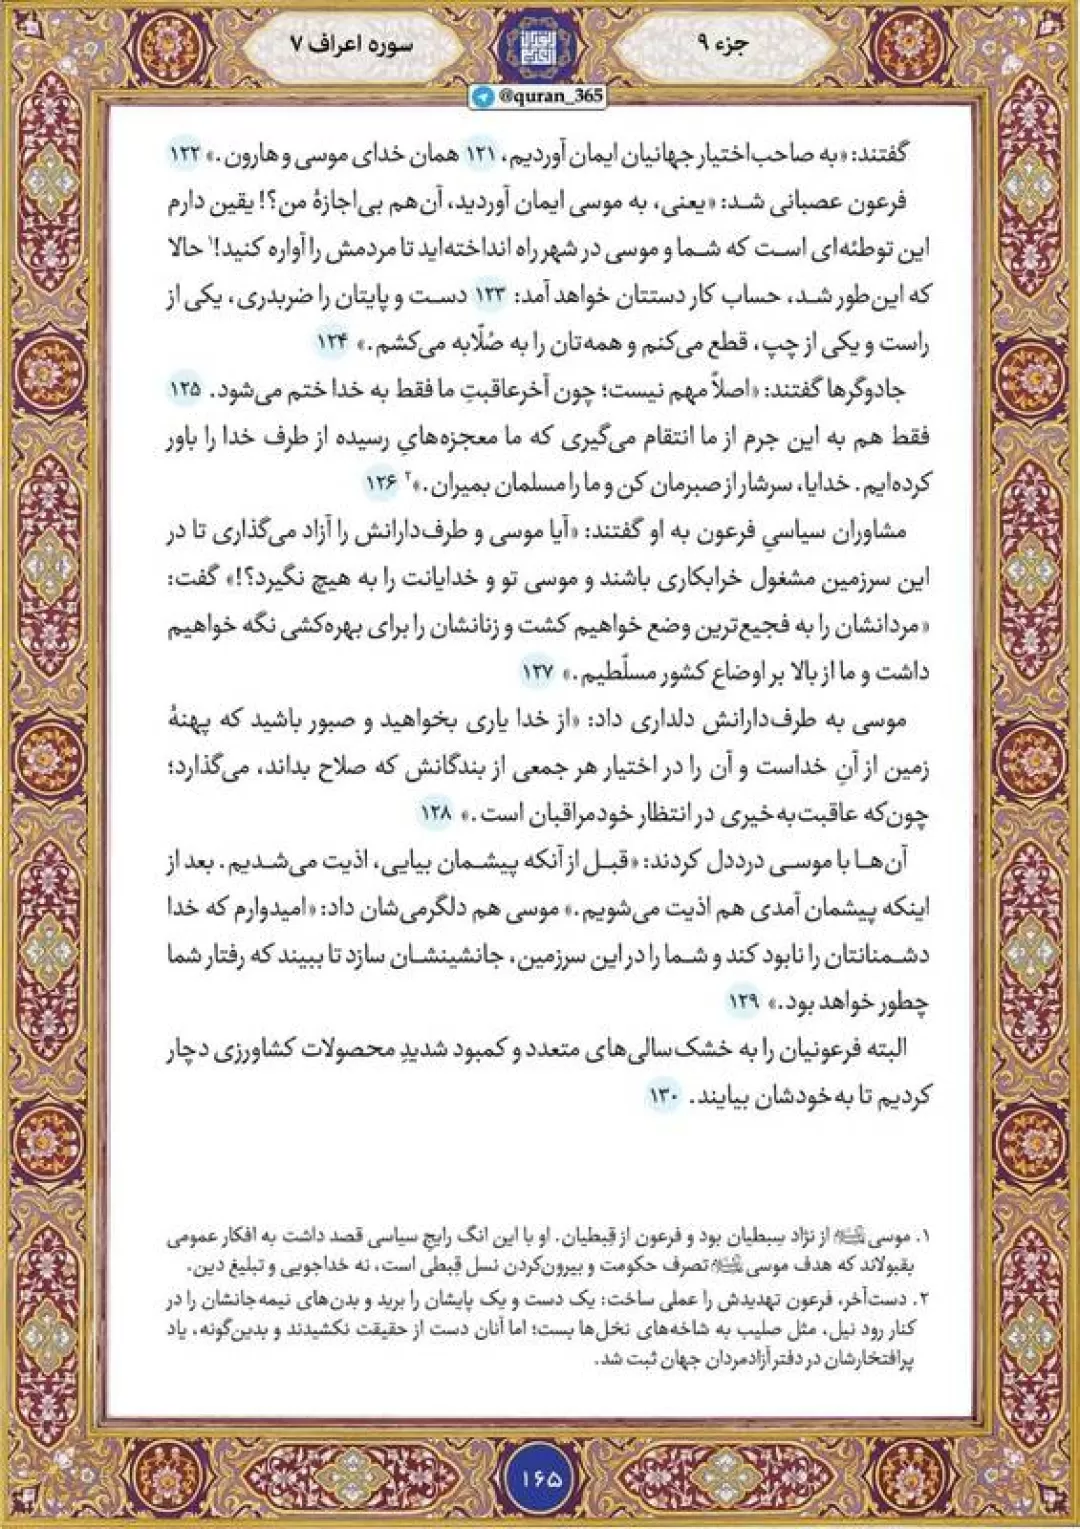 جزء ۹
سوره اعراف ۷
@quran_365
گفتند: «به صاحب‌اختیار جهانیان ایمان آوردیم، ۱۲۱ همان خدای موسی و هارون.» ۱۲۲
فرعون عصبانی شد: «یعنی، به موسی ایمان آوردید، آن‌هم بی‌اجازهٔ من؟! یقین دارم
این توطئه‌ای است که شما و موسی در شهر راه انداخته‌اید تا مردمش را آواره کنید!۱ حالا
که این‌طور شد، حساب کار دستتان خواهد آمد: ۱۲۳ دست و پایتان را ضربدری، یکی از
راست و یکی از چپ، قطع می‌کنم و همه‌تان را به صُلّابه می‌کشم.» ۱۲۴
جادوگرها گفتند: «اصلاً مهم نیست؛ چون آخرعاقبتِ ما فقط به خدا ختم می‌شود. ۱۲۵
فقط هم به این جرم از ما انتقام می‌گیری که ما معجزه‌هایِ رسیده از طرف خدا را باور
کرده‌ایم. خدایا، سرشار از صبرمان کن و ما را مسلمان بمیران.»۲ ۱۲۶
مشاوران سیاسیِ فرعون به او گفتند: «آیا موسی و طرف‌دارانش را آزاد می‌گذاری تا در
این سرزمین مشغول خرابکاری باشند و موسی تو و خدایانت را به هیچ نگیرد؟!» گفت:
«مردانشان را به فجیع‌ترین وضع خواهیم کشت و زنانشان را برای بهره‌کشی نگه خواهیم
داشت و ما از بالا بر اوضاع کشور مسلّطیم.» ۱۲۷
موسی به طرف‌دارانش دلداری داد: «از خدا یاری بخواهید و صبور باشید که پهنهٔ
زمین از آنِ خداست و آن را در اختیار هر جمعی از بندگانش که صلاح بداند، می‌گذارد؛
چون‌که عاقبت‌به‌خیری در انتظار خودمراقبان است.» ۱۲۸
آن‌ها با موسی درددل کردند: «قبل از آنکه پیشمان بیایی، اذیت می‌شدیم. بعد از
اینکه پیشمان آمدی هم اذیت می‌شویم.» موسی هم دلگرمی‌شان داد: «امیدوارم که خدا
دشمنانتان را نابود کند و شما را در این سرزمین، جانشینشان سازد تا ببیند که رفتار شما
چطور خواهد بود.» ۱۲۹
البته فرعونیان را به خشک‌سالی‌های متعدد و کمبود شدیدِ محصولات کشاورزی دچار
کردیم تا به خودشان بیایند. ۱۳۰
۱. موسی از نژاد سبطیان بود و فرعون از قبطیان. او با این انگ رایجِ سیاسی قصد داشت به افکار عمومی
بقبولاند که هدف موسی تصرف حکومت و بیرون‌کردن نسل قِبطی است، نه خداجویی و تبلیغ دین.
۲. دست‌آخر، فرعون تهدیدش را عملی ساخت: یک دست و یک پایشان را برید و بدن‌های نیمه‌جانشان را در
کنار رود نیل، مثل صلیب به شاخه‌های نخل‌ها بست؛ اما آنان دست از حقیقت نکشیدند و بدین‌گونه، یاد
پرافتخارشان در دفتر آزادمردان جهان ثبت شد.
۱۶۵